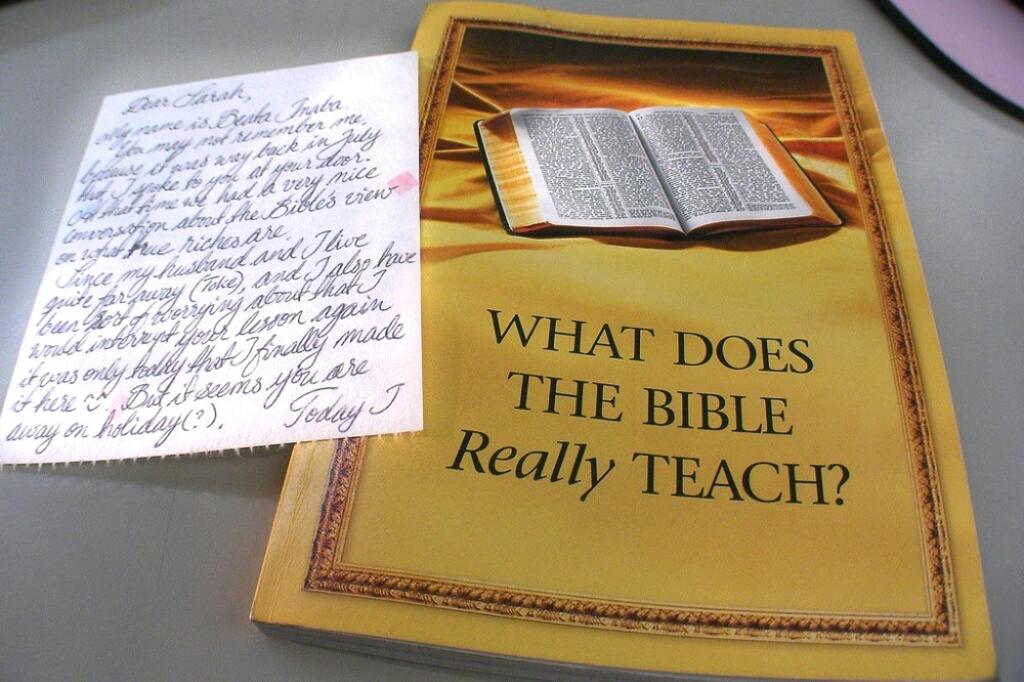 Dear Sarah,
my name is Beata Inaba.
You may not remember me,
because it was way back in July
that I spoke to you at your door.
At that time we had a very nice
conversation about the Bible's view
on what true riches are.
Since my husband and I live
quite far away (Toke), and I also have
been sort of worrying about that I
would interrupt your lesson again
it was only today that I finally made
it here But it seems you are
away on holiday(?). Today I
WHAT DOES
THE BIBLE
Really TEACH?